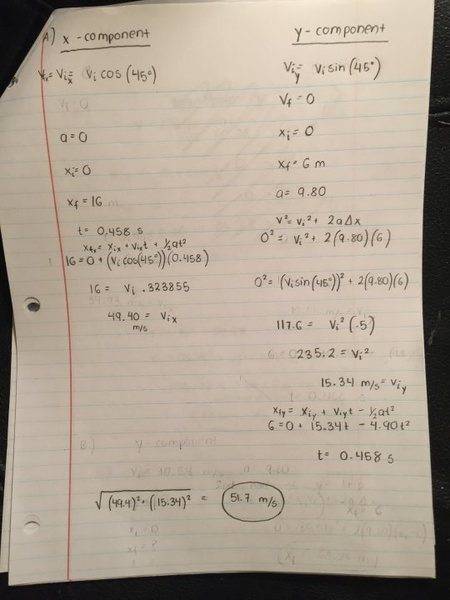 A) x - component
Vfx = Vix = Vi cos (45°)
Vf = 0
a = 0
xi = 0
xf = 16 m
t = 0.458 s
xfx = xix + vixt + ½at²
16 = 0 + (Vi cos(45°))(0.458)
16 = Vi .323855
49.40 m/s = Vix
y - component
Viy = Vi sin (45°)
Vf = 0
xi = 0
xf = 6 m
a = 9.80
v² = vi² + 2a∆x
0² = Vi² + 2(9.80)(6)
0² = (Vi sin(45°))² + 2(9.80)(6)
117.6 = Vi² (.5)
235.2 = Vi²
15.34 m/s = Viy
xfy = xiy + viyt - ½at²
6 = 0 + 15.34t - 4.90t²
t = 0.458 s
√(49.4)² + (15.34)² = 51.7 m/s
B.) y - component